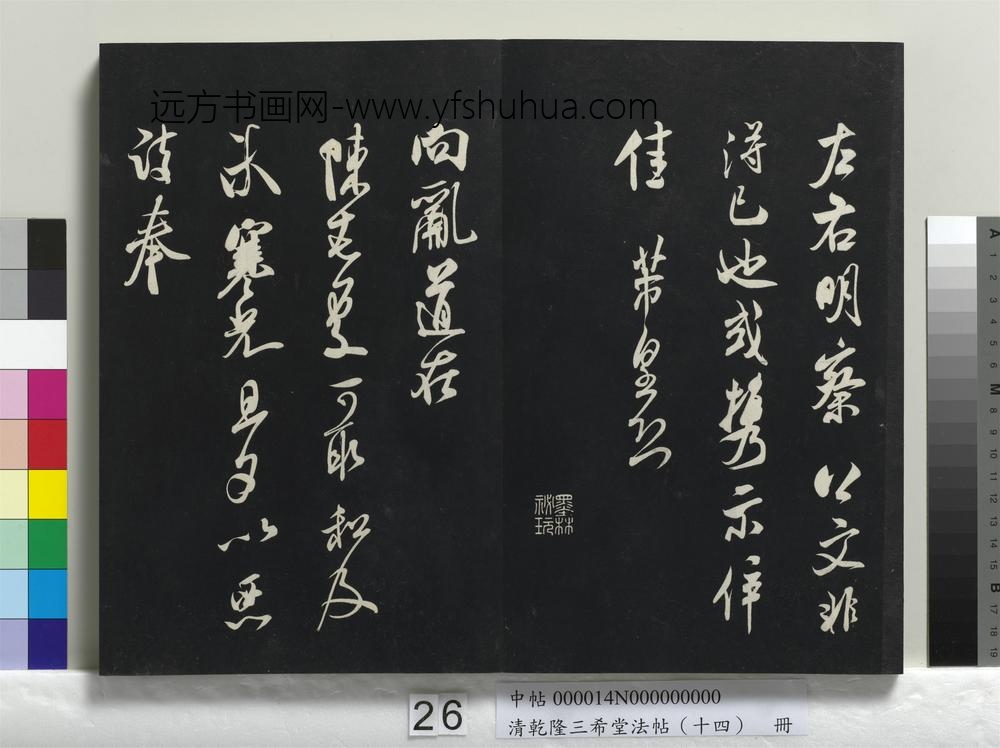 远方书画网-www.yfshuhua.com
左右明察 公文非
得已也或攜示
佳 芾皇恐
墨林
祕玩
向亂道在
陳 可取 及
寒光旦夕以惡
詩奉
26
中帖 000014N000000000
清乾隆三希堂法帖（十四） 冊
A 1 2 3 4 5 6 M 8 9 10 11 12 13 14 15 B 17 18 19